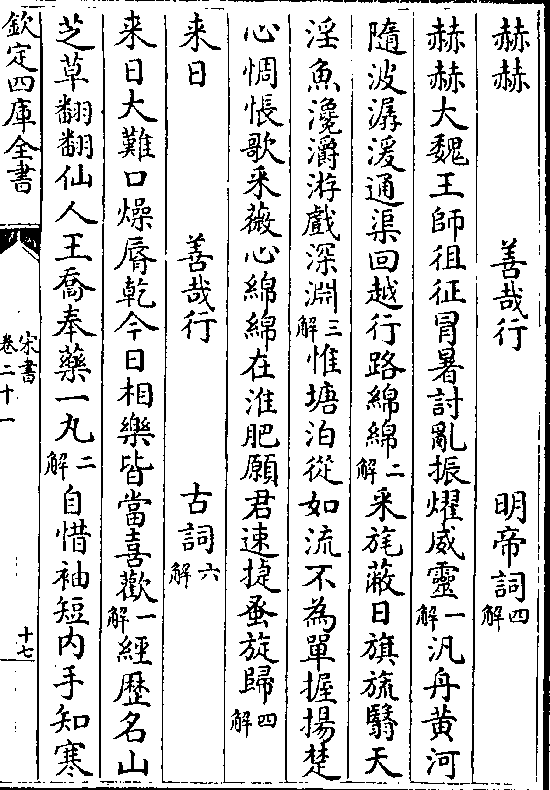 赫赫　善哉行　明帝詞四解
赫赫大魏王師徂征冒暑討亂振燿威靈一解汎舟黄河
隨波潺湲通渠回越行路綿綿二解采旄蔽日旗旒翳天
淫魚瀺灂游戲深淵三解惟塘泊從如流不為單握揚楚
心惆悵歌采薇心綿綿在淮肥願君速捷蚤旋歸四解
来日　善哉行　古詞六解
来日大難口燥脣乾今日相樂皆當喜歡一解經歷名山
芝草翻翻仙人王喬奉藥一丸二解自惜袖短内手知寒
欽定四庫全書
宋書
卷二十一
十七